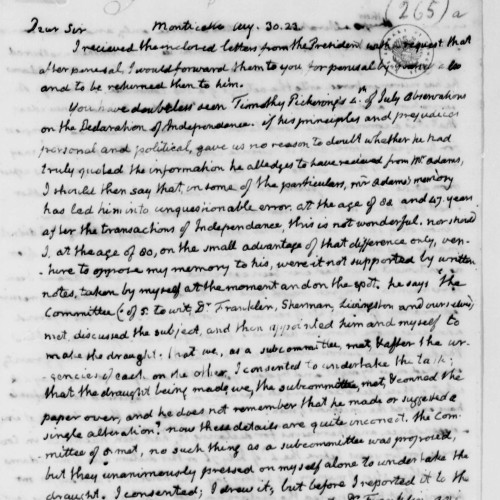 (265) a
Dear Sir Monticello Aug. 30. 23.
I recieved the enclosed letters from the President with a request that
after perusal I would forward them to you for perusal by yourself also
and to be returned then to him.
You have doubtless seen Timothy Pickering's 4th of July Observations
on the Declaration of Independance. if his principles and prejudices
personal and political, gave us no reason to doubt whether he had
truly quoted the information he alledges to have recieved from Mr. Adams,
I should then say that in some of the particulars, mr Adams's memory
has led him into unquestionable error. at the age of 88 and 47. years
after the transactions of Independance, this is not wonderful. nor should
I, at the age of 80, on the small advantage of that difference only, ven-
-ture to oppose my memory to his, were it not supported by written
notes, taken by myself at the moment and on the spot. he says 'the
Committee (of 5. to wit, Dr. Franklin, Sherman, Livingston and ourselves)
met, discussed the subject, and then appointed him and myself to
make the draught. that we, as a subcommittee, met, & after the ur-
gencies of each on the other, I consented to undertake the task;
that the draught being made, we, the subcommittee, met, & conned the
paper over, and he does not remember that he made or suggested a
single alteration.' now these details are quite incorrect. the Com-
mittee of 5. met, no such thing as a subcommittee was proposed,
but they unanimously pressed on myself alone to undertake the
draught. I consented; I drew it; but before I reported it to the